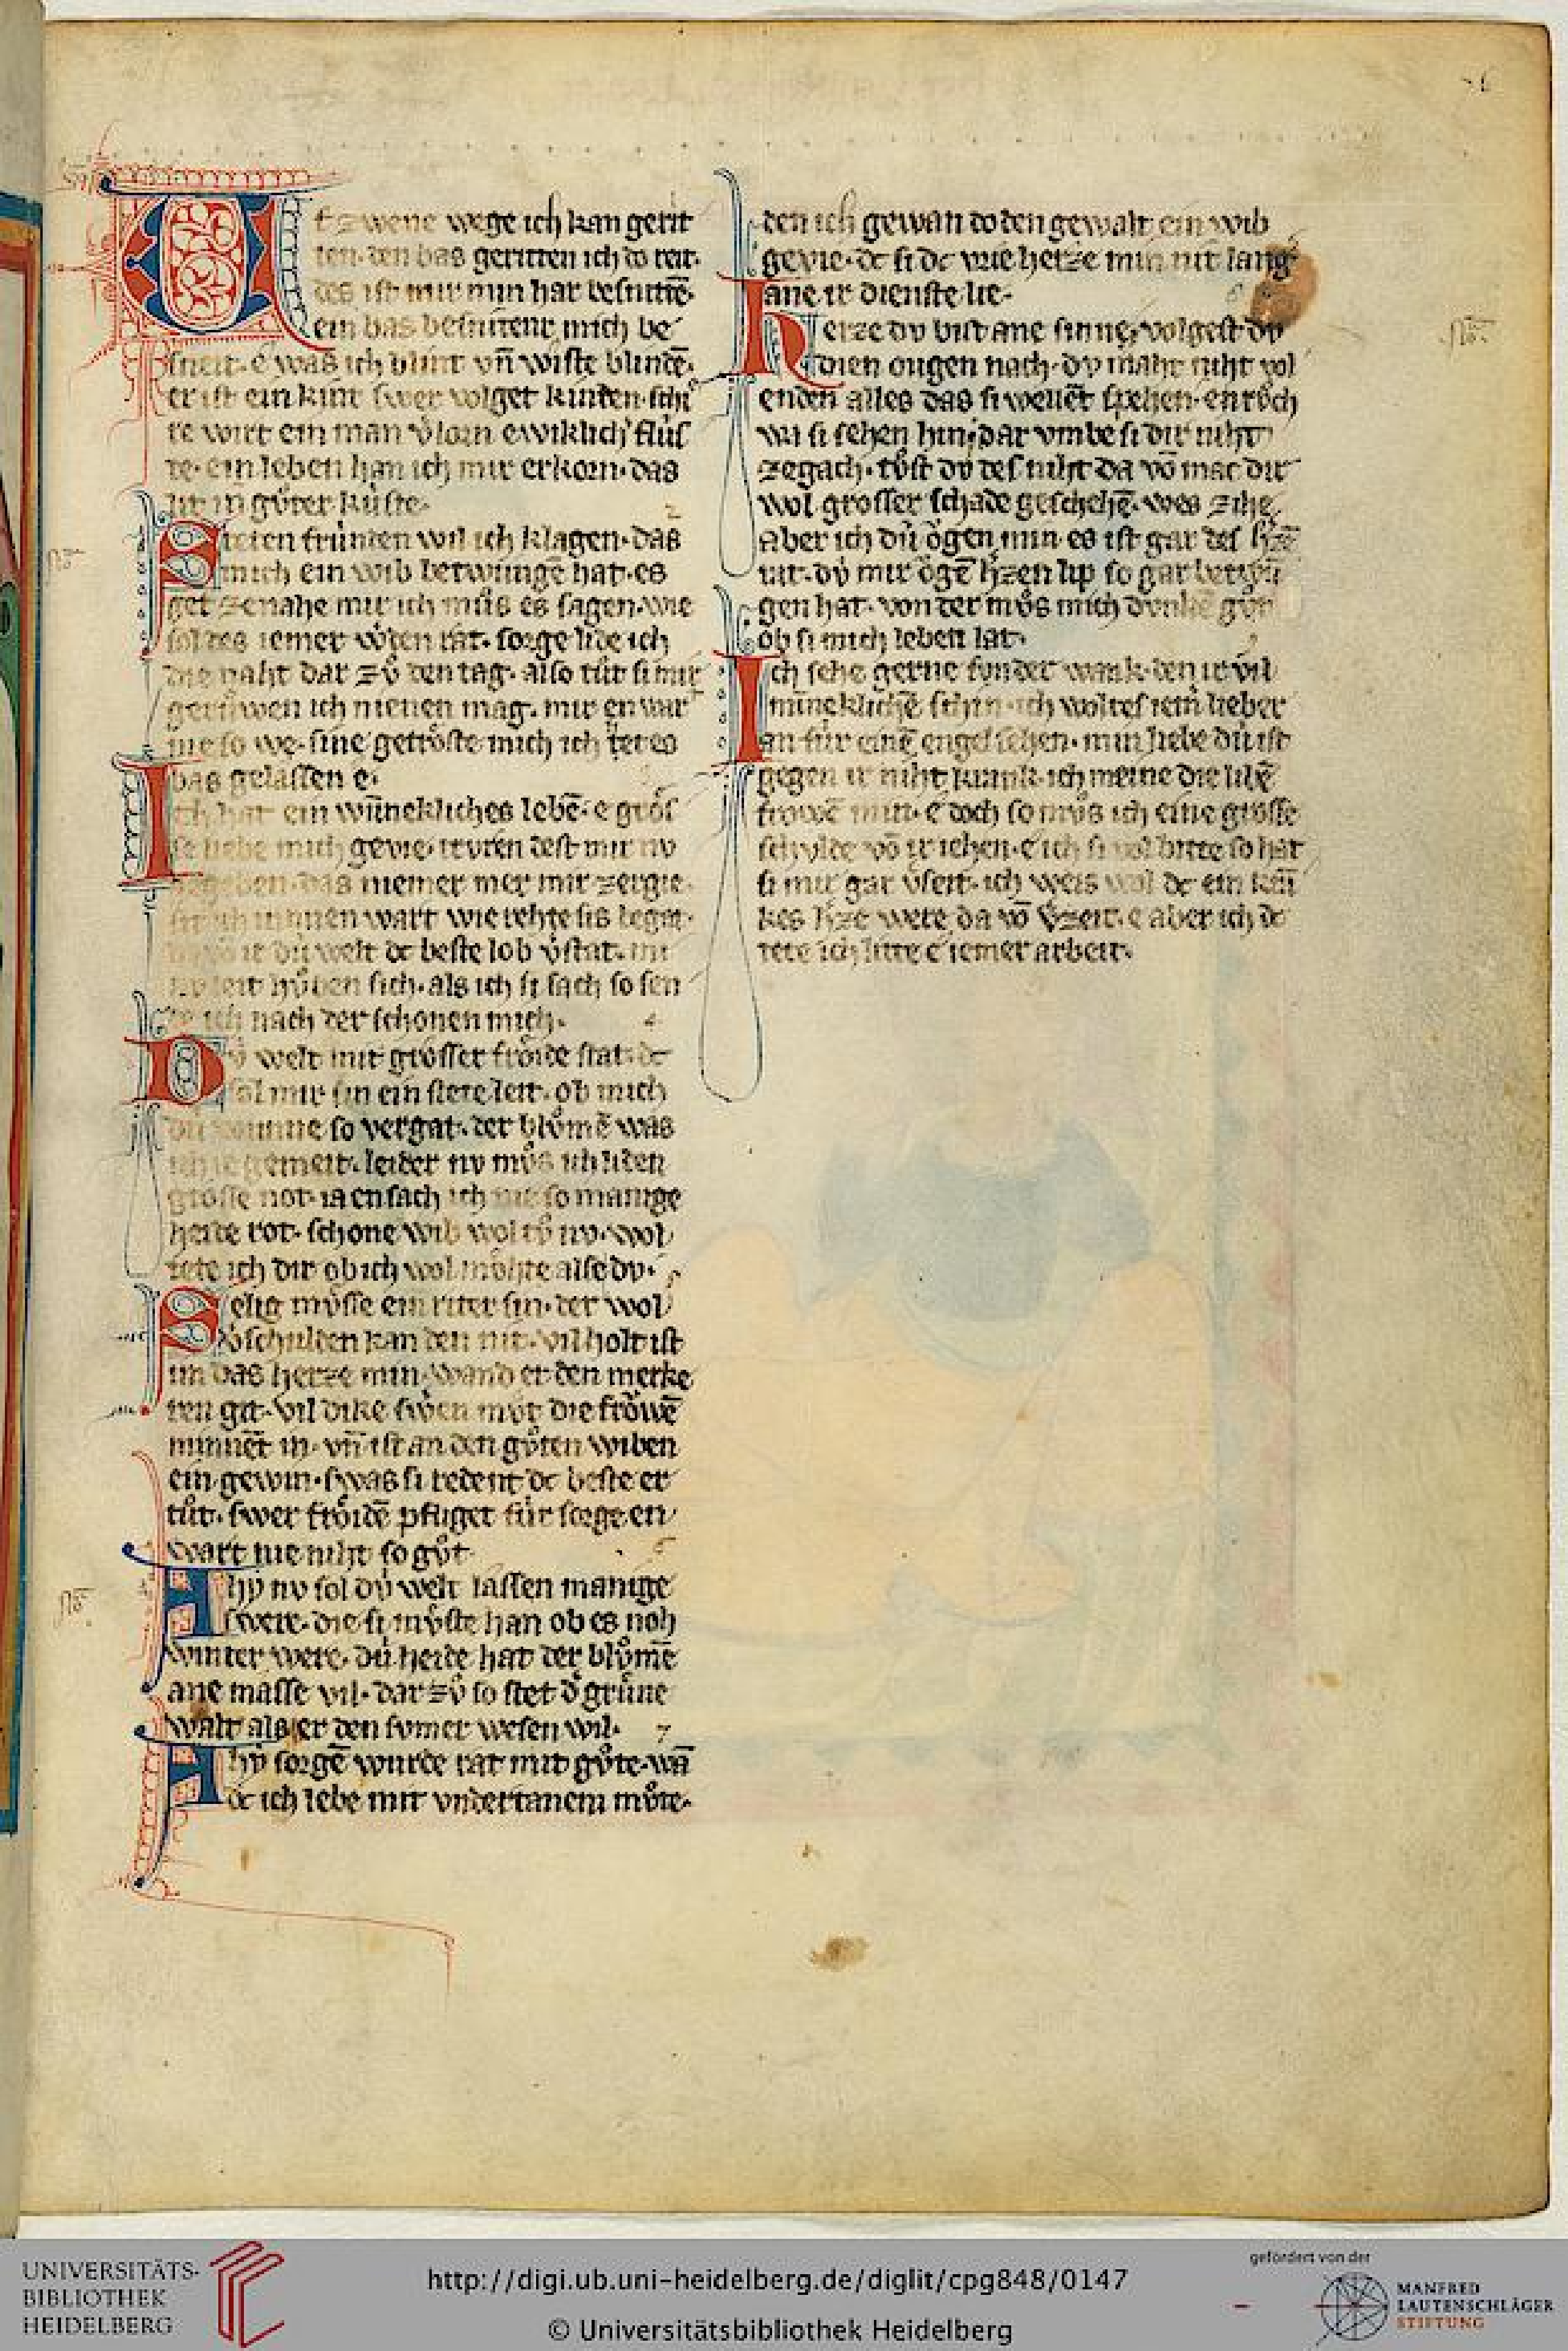 Uf zwene wege ich kan gerit
ten. den bas geritten ich do reit.
des ist mir min har besnittē.
ein bas besnitent mich be
sneit. e was ich blint vn̄ wiste blindē.
er ist ein kint swer volget kinden. schi
re wirt ein man v̄lorn ewiklich flus
te. ein leben han ich mir erkorn. das
lit in gůter kúste.
2
Steten frúnden wil ich klagen. das
mich ein wib betwunge hat. es
get ze nahe mir ich můs es sagen. wie
sol des iemer w̄den rat. sorge lide ich
die naht dar zů den tag. also tůt si mir
gerůwen ich nienen mag. mir en wart
nie so we. sine getröste mich ich tet es
bas gelassen e.
Ich hat ein wn̄nekliches lebē. e gros
se liebe mich gevie.
das niemer mer mir zergie.
wart wie rehte sis begat.
ir dú welt dc beste lob v̄stat.
hůben sich. als ich si sach so sen
te ich nach der schonen mich.
4
Dú welt mit grosser fröide stat. dc
sol mir sin ein stete leit. ob mich
dú wunne so vergat. der blůmē was
ich ie gemeit. leider nv můs ich liden
grosse not. ia en sach ich nie so manige
heide rot. schone wib wol tů nv. wol
tete ich dir ob ich wol möhte alse dv.
5
Selig músse ein riter sin. der wol
v̄schulden kan den nit. vil holt ist
im das herze min. wand er den merke
ren git. vil dike sweren můt die frowē
minnēt in. vn̄ ist an den gůten wiben
ein gewin. swas si redent dc beste er
tůt. swer fröidē pfliget fúr sorge en
wart nie niht so gůt.
6
Ahy nv sol dú welt lassen manige
swere. die si můste han ob es noh
winter were. dú heide hat der blůmē
ane masse vil. dar zů so stet d̄ grůne
walt als er den svmer wesen wil.
7
Ahy sorgē wurde rat mit gůte. wā
dc ich lebe mit vndertanem můte.
den ich gewan do den gewalt ein wib
gevie. dc si dc vrie herze min nit lang
ane ir dienste lie.
8
Herze dv bist ane sinne, volgest dv
dien ougen nach. dv maht niht vol
enden alles das si wellēt spehen. en růch
wa si sehen hin. dar vmbe si dir niht
ze gach. tůst dv des niht da vō mac dir
wol grosser schade geschehē. wes zihe
aber ich dú ögen min. es ist gar des h̄zē
nit. dv mir ögē h̄zen lip so gar betwū
gen hat. von der můs mich dvnkē gůt
ob si mich leben lat.
Ich sihe gerne svnder wank. den ir vil
minneklichē schin. ich woltes iem̄ lieber
an fúr einē engel sehen. min liebe dú ist
gegen ir niht krank. ich meine die libē
frowē min. e doch so můs ich eine grosse
schvlde vō ir iehen. e ich si vol bitte so hat
si mir gar v̄seit. ich weis wol dc ein kein
kes h̄ze were da vō v̄zeit. e aber ich dc
tete ich litte e iemer arbeit.
UNIVERSITÄTS-
BIBLIOTHEK
HEIDELBERG
http://digi.ub.uni-heidelberg.de/diglit/cpg848/0147
© Universitätsbibliothek Heidelberg
gefördert von der
MANFRED
LAUTENSCHLÄGER
STIFTUNG